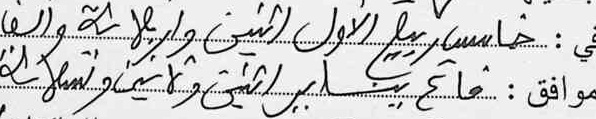 في : خامس ربيع الأول اثنين واربعمائة والف
موافق : فاتح يناير اثنين وثمانين وتسعمائة